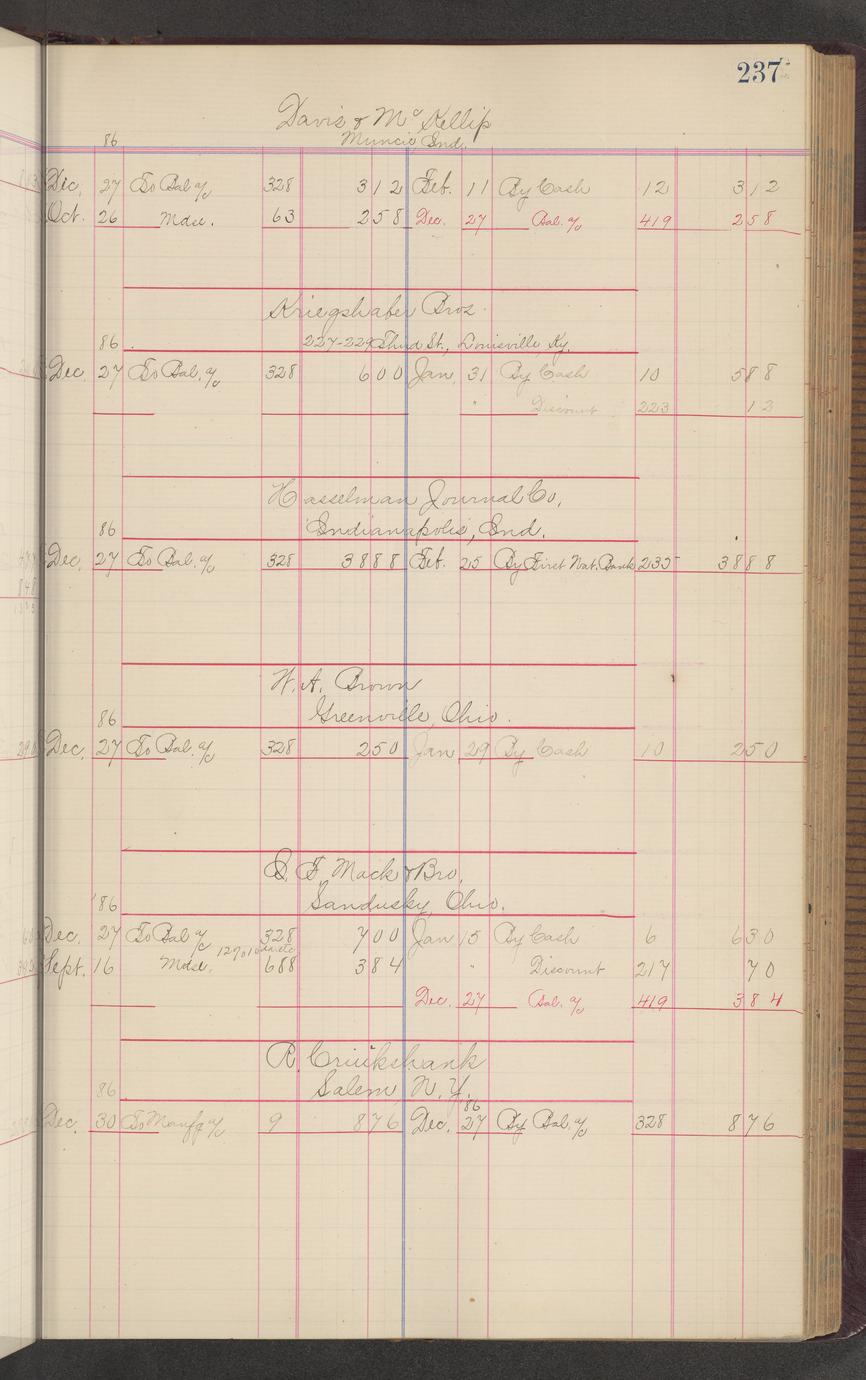 237
Davis & McKellip
Muncie Ind.
86
Dec. 27 To Bal a/c 328 312 Feb. 11 By Cash 12 312
Oct. 26 Mdse. 63 258 Dec. 27 Bal. a/c 419 258
Kriegshaber Bros
86 227-229 Third St., Louisville, Ky.
Dec. 27 To Bal. a/c 328 600 Jan 31 By Cash 10 588
" Discount 223 12
Hasselman Journal Co,
86 Indianapolis, Ind.
Dec. 27 To Bal. a/c 328 3888 Feb. 25 By First Nat. Bank 235 3888
W. A. Brown
86 Greenville, Ohio.
Dec. 27 To Bal. a/c 328 250 Jan 29 By Cash 10 250
Mack & Bro.
'86 Sandusky, Ohio.
Dec. 27 To Bal a/c 328 700 Jan 15 By Cash 6 630
Sept. 16 Mdse. 688 384 " Discount 217 70
Dec. 27 Bal. a/c 419 384
R. Cruikshank
86 Salem, N. Y.
86
Dec. 30 To Manfg a/c 9 876 Dec. 27 By Bal. a/c 328 876